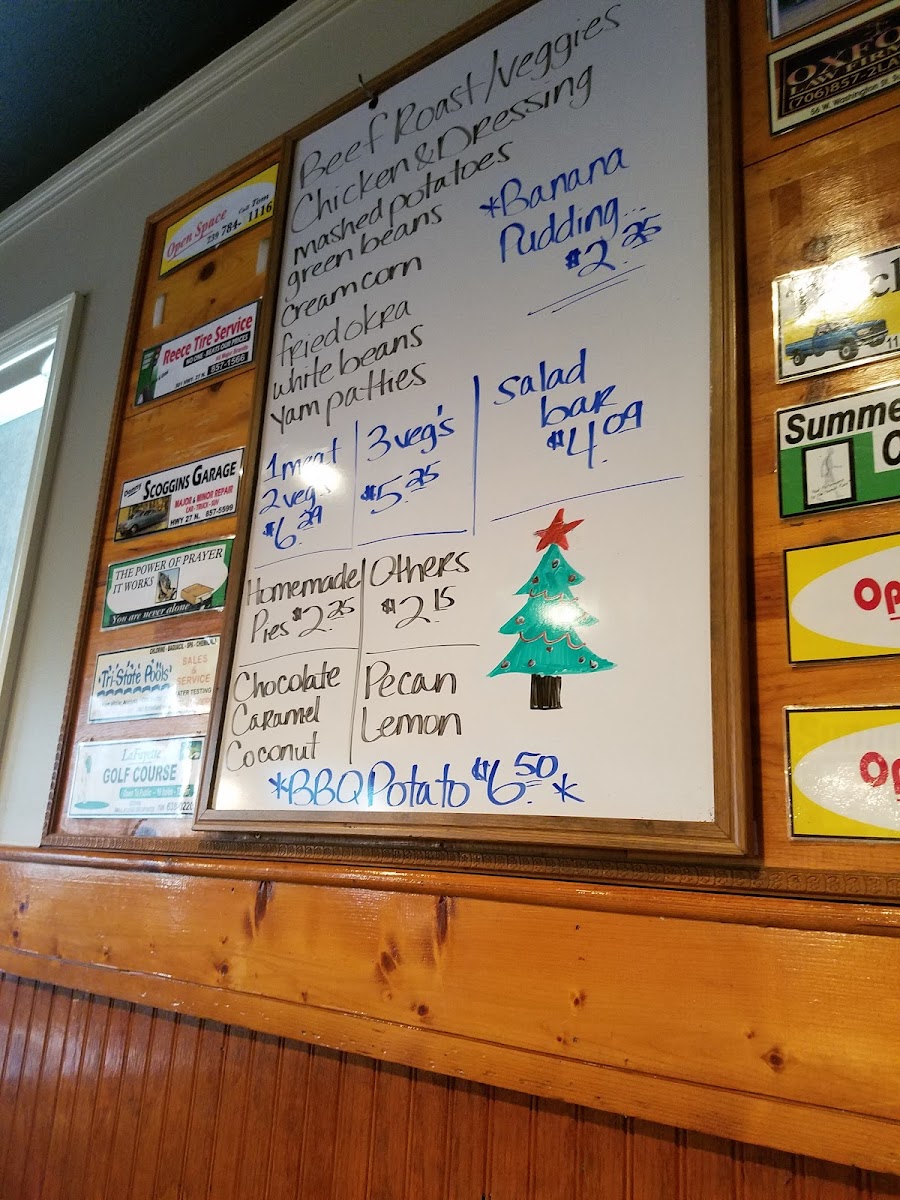 Beef Roast/Veggies
Chicken & Dressing
mashed potatoes
green beans
cream corn
fried okra
white beans
yam patties
*Banana
Pudding...
$2.25
1 meat
2 veg's
$6.29
3 veg's
$5.25
Salad
bar
$4.09
Homemade
Pies $2.25
Others
$2.15
Chocolate
Caramel
Coconut
Pecan
Lemon
*BBQ Potato $6.50*
Open Space
Call Today
784-1116
Reece Tire Service
NO ONE - BEATS OUR PRICES
All Major Brands
HWY 27 N. 857-1566
SCOGGINS GARAGE
MAJOR & MINOR REPAIR
CAR - TRUCK - SUV
HWY 27 N. 857-5599
THE POWER OF PRAYER
IT WORKS
You are never alone
Tri-State Pools
SALES
&
SERVICE
WATER TESTING
LaFayette
GOLF COURSE
OXFO
LAW FIRM
(706)857-2LA
56 W. Washington St. S
Summe
Op
Op